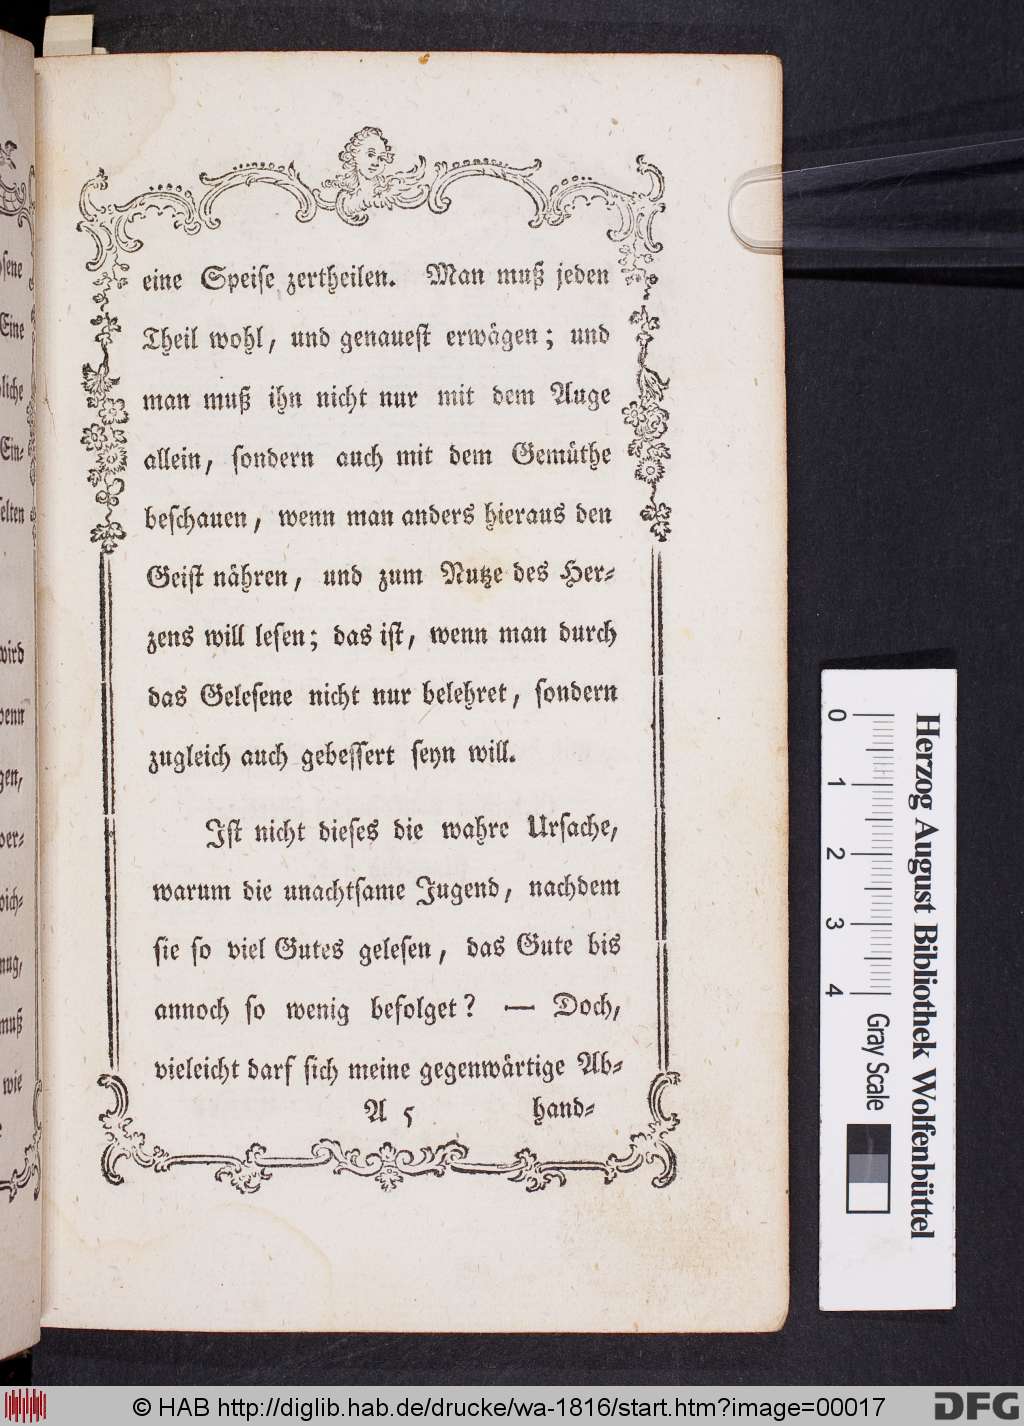 eine Speiſe zertheilen. Man muß jeden
Theil wohl, und genaueſt erwägen; und
man muß ihn nicht nur mit dem Auge
allein, ſondern auch mit dem Gemüthe
beſchauen, wenn man anders hieraus den
Geiſt nähren, und zum Nutze des Her-
zens will leſen; das iſt, wenn man durch
das Geleſene nicht nur belehret, ſondern
zugleich auch gebeſſert ſeyn will.
Iſt nicht dieſes die wahre Urſache,
warum die unachtſame Jugend, nachdem
ſie ſo viel Gutes geleſen, das Gute bis
annoch ſo wenig befolget? — Doch,
vieleicht darf ſich meine gegenwärtige Ab-
A 5 hand-
ſene
Eine
liche
Ein-
elten
wird
wenn
gen,
ver-
wich-
nug,
muß
wie
0 1 2 3 4
Herzog August Bibliothek Wolfenbüttel
Gray Scale
© HAB http://diglib.hab.de/drucke/wa-1816/start.htm?image=00017
DFG